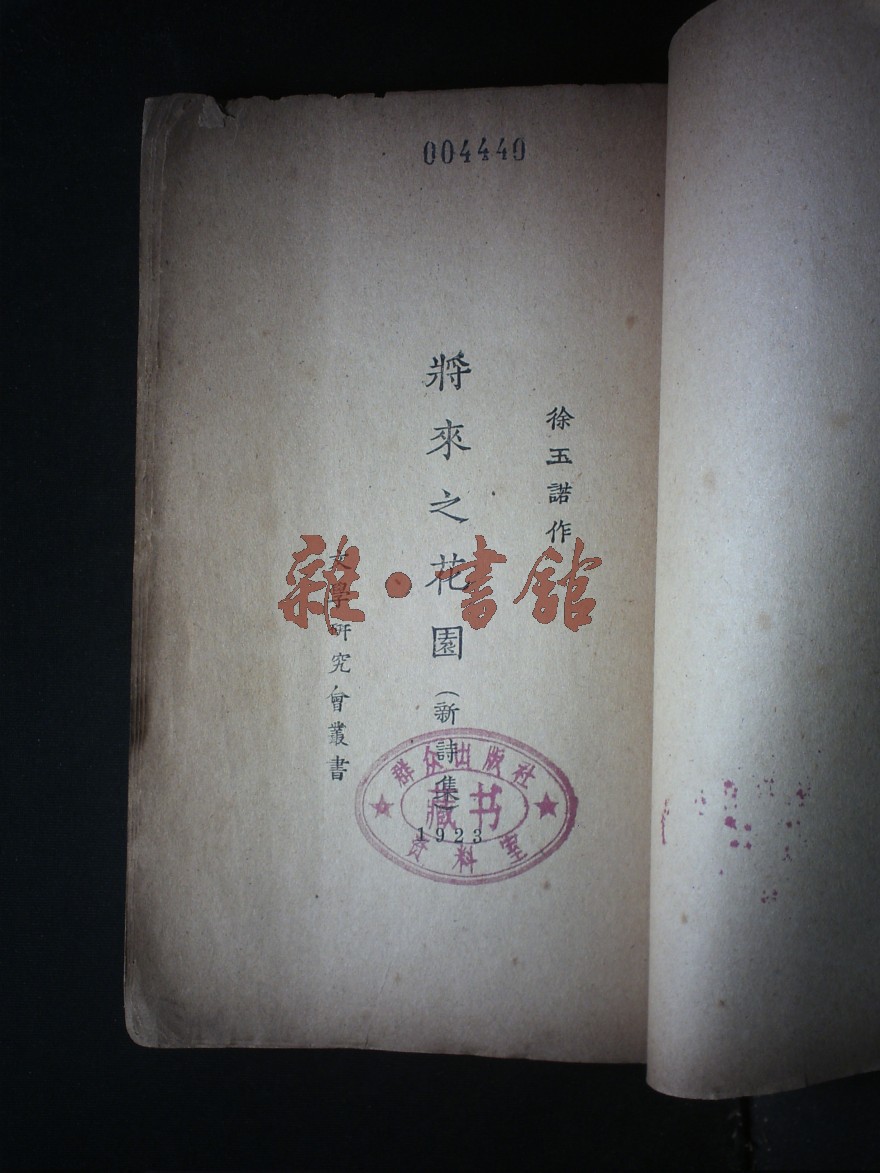 004440
徐玉諾作
將來之花園(新詩集)
1923
文學研究會叢書
群众出版社
藏书
资料室
雜·書館